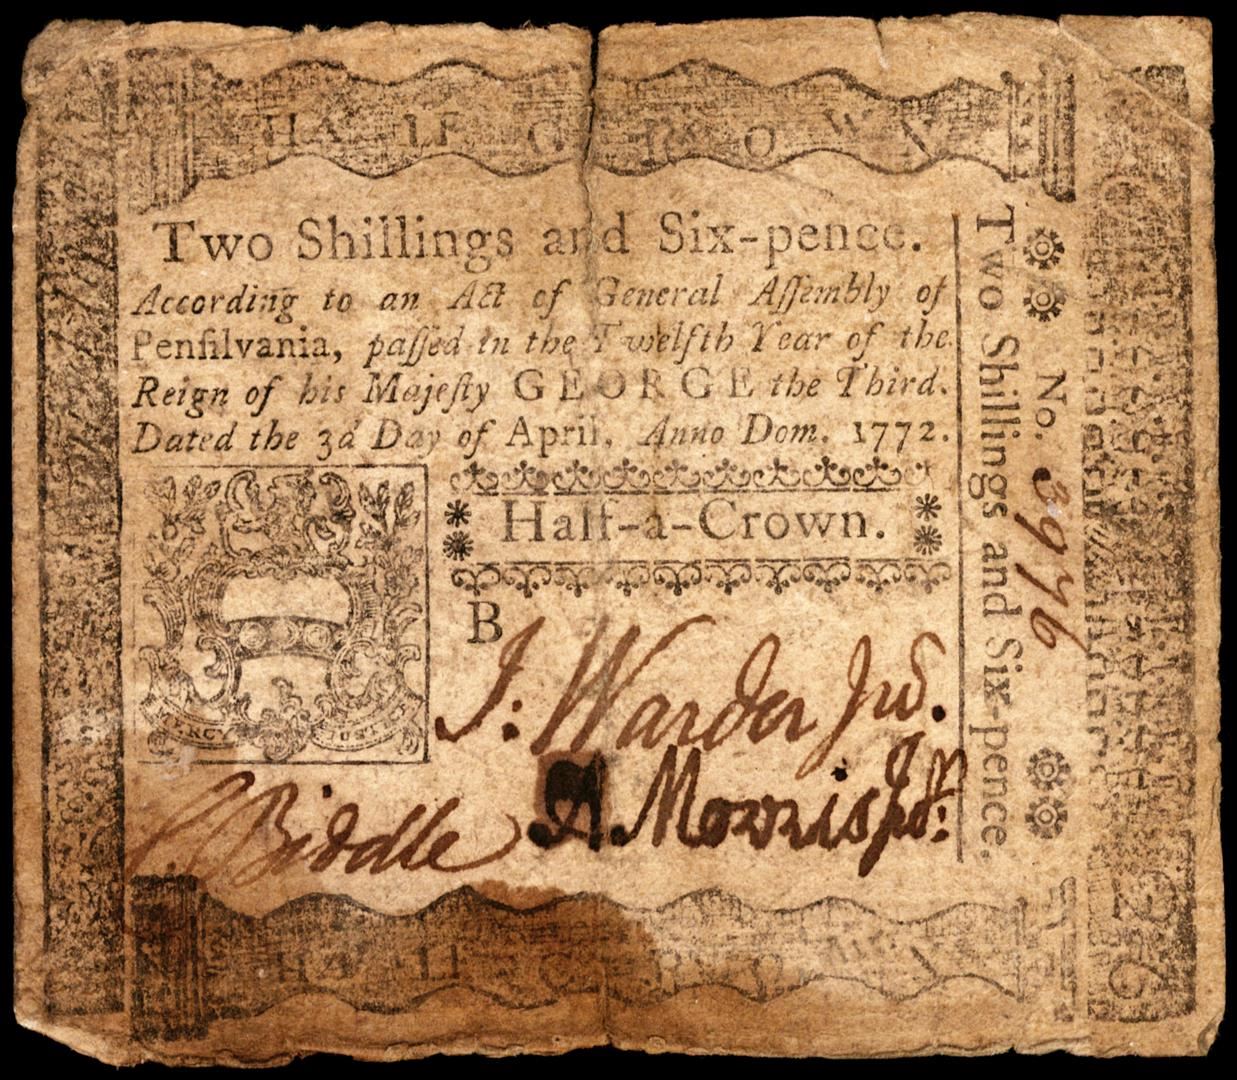 HALF CROWN
Two Shillings and Six-pence.
According to an Act of General Aſſembly of
Penſilvania, paſſed in the Twelfth Year of the
Reign of his Majeſty GEORGE the Third.
Dated the 3d Day of April, Anno Dom. 1772.
Half-a-Crown.
B
J: Warder Jur.
Biddle
A Morris Jr:
HALF CROWN
Two Shillings and Six-pence.
No. 3976